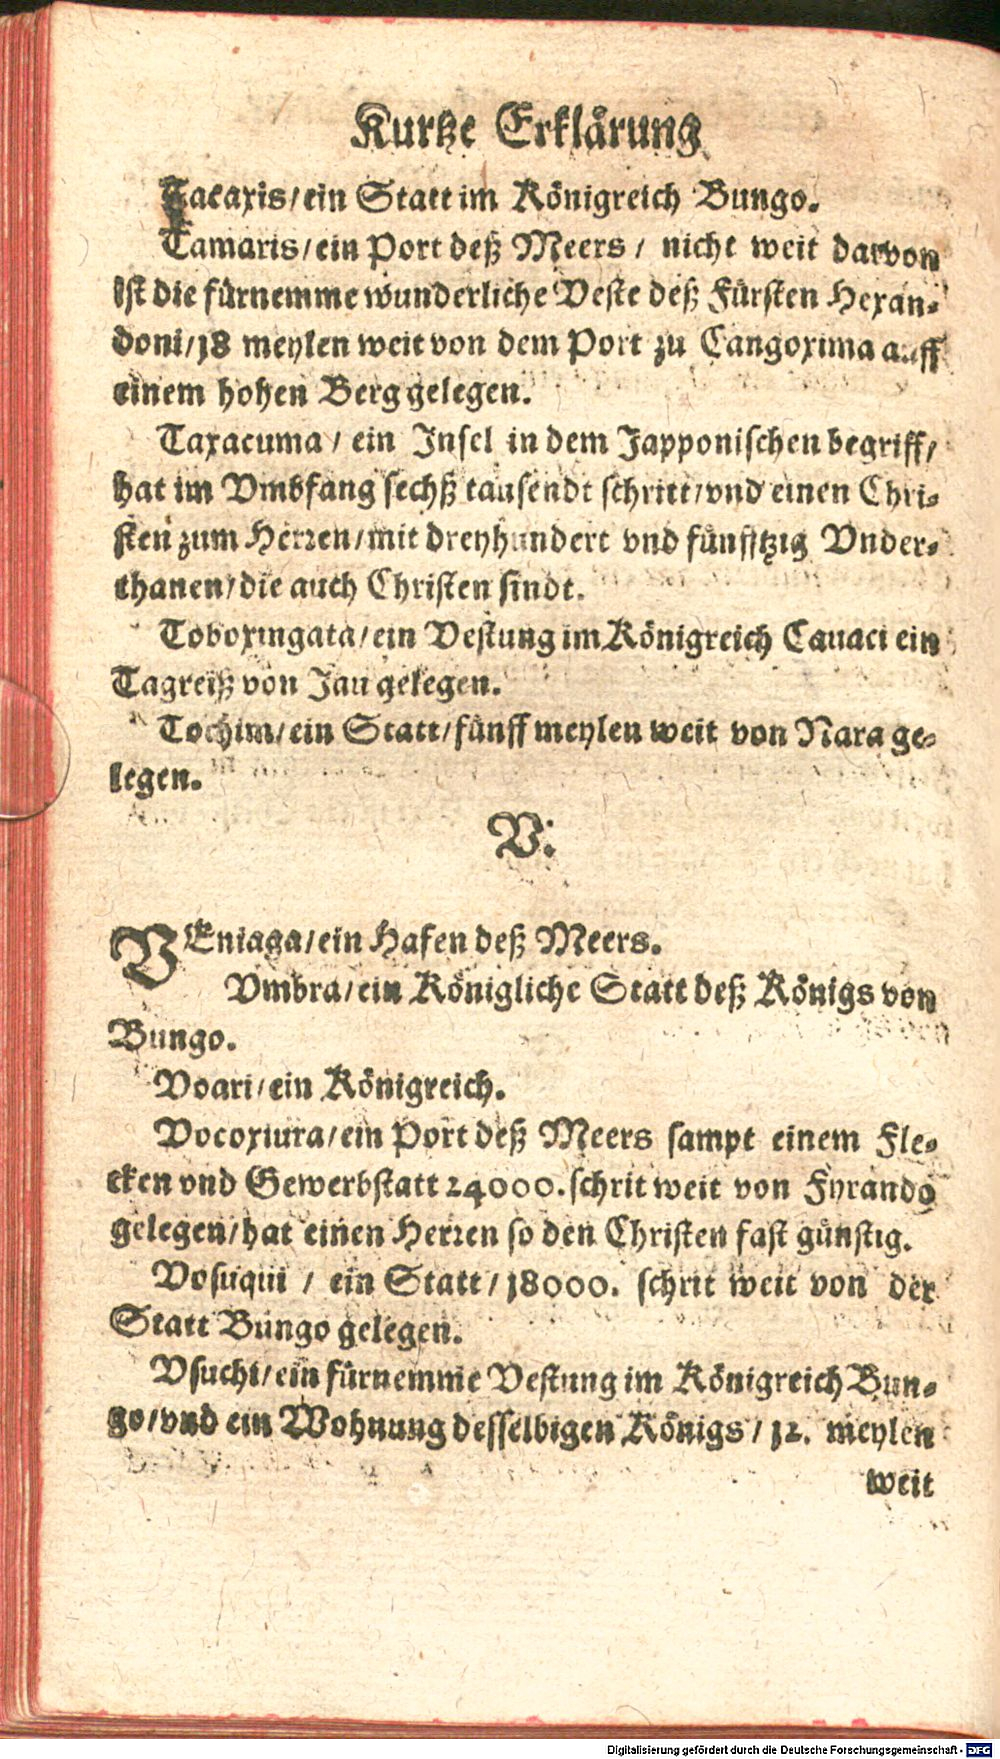 Kurtze Erklärung
Tacaxis/ein Statt im Königreich Bungo.
Tamaris/ein Port deß Meers/ nicht weit darvon
ist die fürnemme wunderliche Veste deß Fürsten Hexan-
doni/18 meylen weit von dem Port zu Cangoxima auff
einem hohen Berg gelegen.
Taxacuma/ ein Insel in dem Japponischen begriff/
hat im Vmbfang sechß tausendt schritt/vnd einen Chri-
sten zum Herren/mit dreyhundert vnd fünfftzig Vnder-
thanen/die auch Christen sindt.
Toboxingata/ein Vestung im Königreich Cauaci ein
Tagreiß von Jau gelegen.
Tochim/ein Statt/fünff meylen weit von Nara ge-
legen.
V.
VEniaga/ein Hafen deß Meers.
Vmbra/ein Königliche Statt deß Königs von
Bungo.
Voari/ein Königreich.
Vocoxiura/ein Port deß Meers sampt einem Fle-
cken vnd Gewerbstatt 24000. schrit weit von Fyrando
gelegen/hat einen Herren so den Christen fast günstig.
Vosuqui / ein Statt/18000. schrit weit von der
Statt Bungo gelegen.
Vsuchi/ein fürnemme Vestung im Königreich Bun-
go/vnd ein Wohnung desselbigen Königs/ 12. meylen
weit
Digitalisierung gefördert durch die Deutsche Forschungsgemeinschaft - DFG